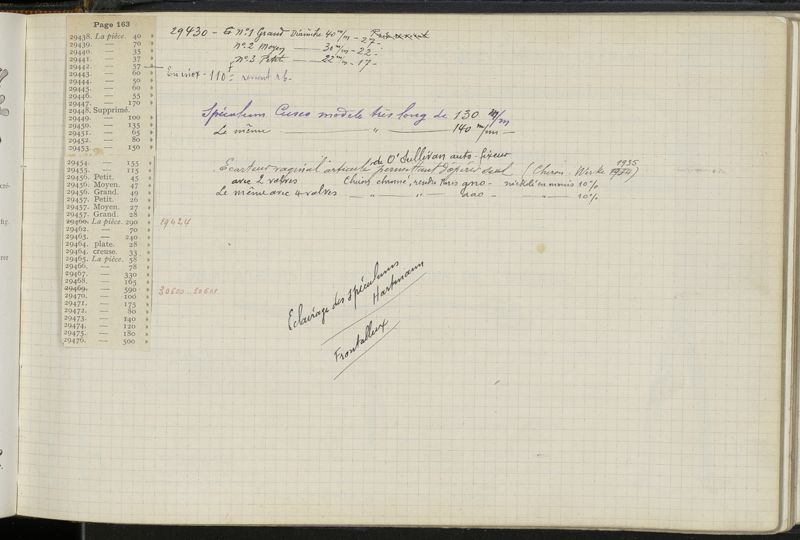 Page 163
29438. La pièce. 40 »
29439. — 70 »
29440. — 35 »
29441. — 37 »
29442. — 57 »
29443. — 60 »
29444. — 50 »
29445. — 60 »
29446. — 55 »
29447. — 170 »
29448. Supprimé.
29449. — 100 »
29450. — 135 »
29451. — 65 »
29452. — 80 »
29453. — 150 »
29454. — 155 »
29455. — 115 »
29456. Petit. 45 »
29456. Moyen. 47 »
29456. Grand. 49 »
29457. Petit. 26 »
29457. Moyen. 27 »
29457. Grand. 28 »
29460. La pièce. 290 »
29462. — 70 »
29463. — 240 »
29464. plate. 28 »
29464. creuse. 33 »
29465. La pièce. 58 »
29466. — 78 »
29467. — 330 »
29468. — 165 »
29469. — 590 »
29470. — 100 »
29471. — 175 »
29472. — 80 »
29473. — 140 »
29474. — 120 »
29475. — 180 »
29476. — 500 »
29430 - N°1 Grand Diamètre 40 m/m - 27 -
N°2 Moyen — 30 m/m - 22 -
N°3 Petit — 22 m/m - 17 -
En inox - 110 f
Spéculum Cusco modèle très long de 130 m/m
Le même — " — 140 m/m —
de O'Sullivan auto-fixeur
Ecarteur vaginal articulé permettant d'opérer seul (Chiron. Wirke 1935)
avec 2 valves Chiron chromé, rendu Paris nickelé en moins 10%
Le même avec 4 valves — " — " — 10%
19424
30600 -
Eclairage des spéculums
Hartmann
Frontallux